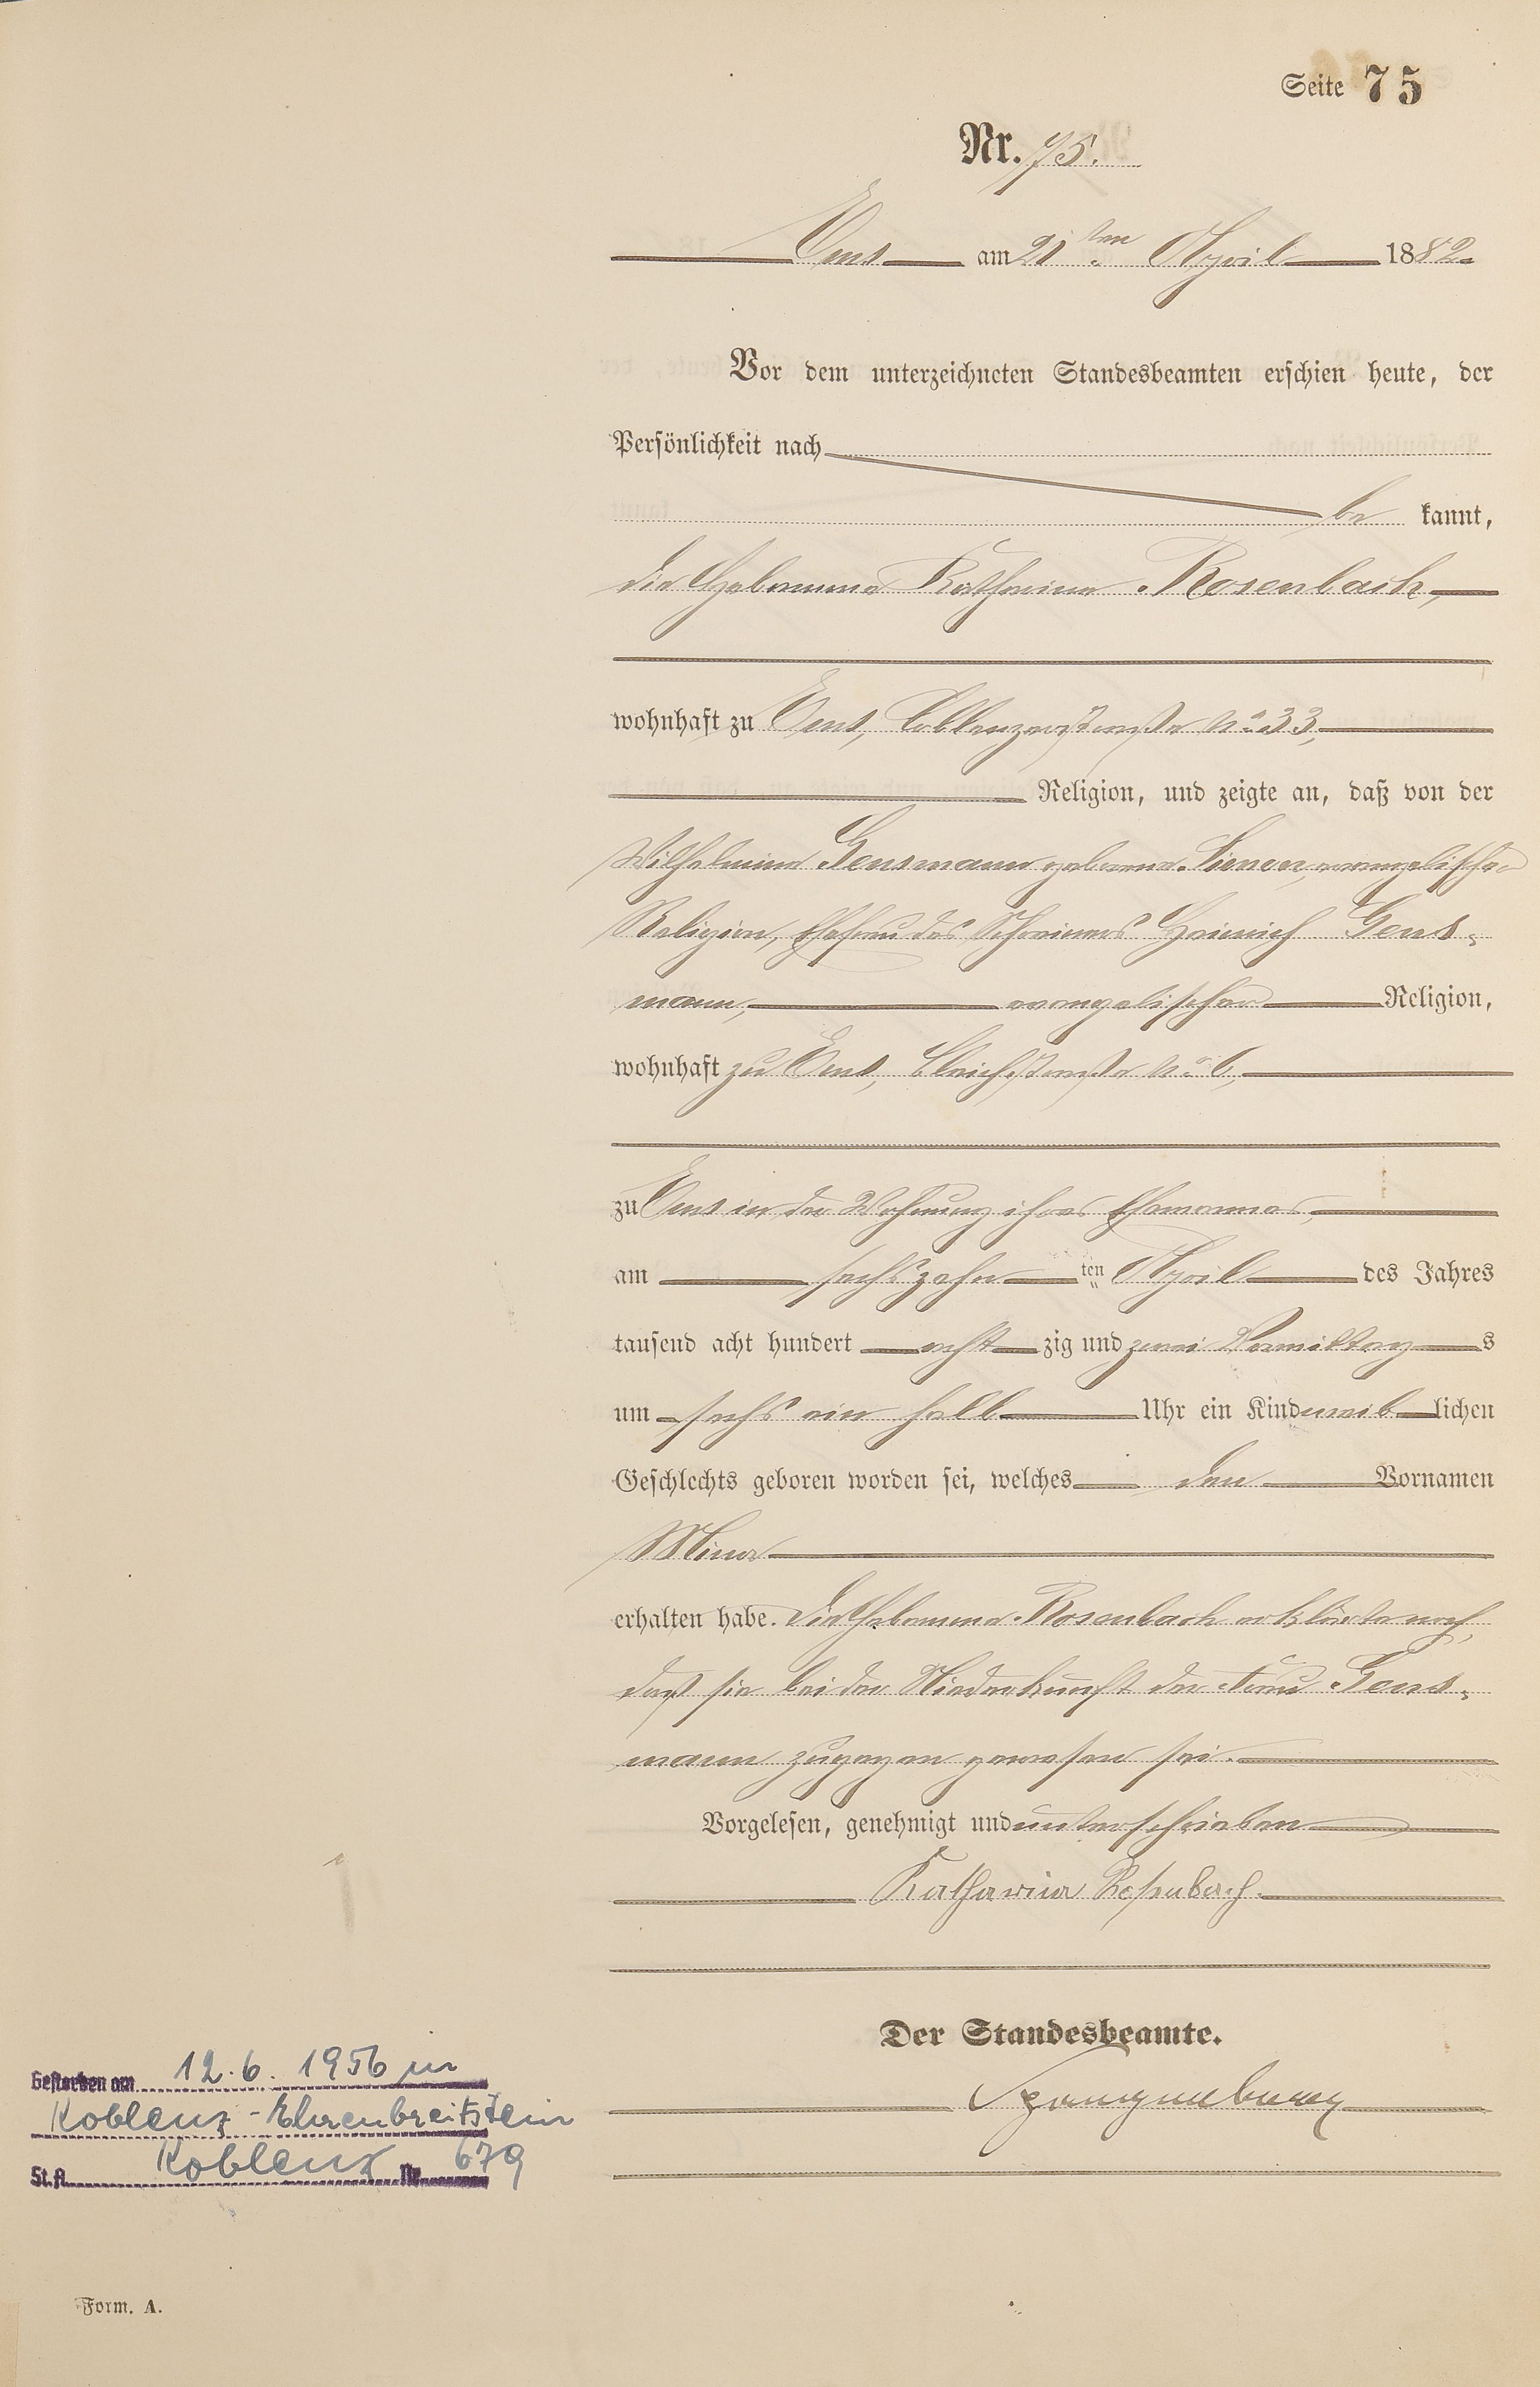 Seite 75
Nr. 75.
Ems am 21ten April 1882.
Vor dem unterzeichneten Standesbeamten erschien heute, der
Persönlichkeit nach
be kannt,
die Hebamme Katharina Rosenbach,
wohnhaft zu Ems, Coblenzerstraße No 33,
Religion, und zeigte an, daß von der
Wilhelmine Gensmann geborene Siener, evangelischer
Religion, Ehefrau des Schreiners Heinrich Gens-
mann, evangelischer Religion,
wohnhaft zu Ems, Bleichstraße No 6,
zu Ems in der Wohnung ihres Ehemannes,
am sechszehn ten April des Jahres
tausend acht hundert acht zig und zwei Vormittag s
um sechs ein halb Uhr ein Kind weib lichen
Geschlechts geboren worden sei, welches den Vornamen
Mina
erhalten habe. Die Hebamme Rosenbach erklärte noch,
daß sie bei der Niederkunft der Frau Gens-
mann zugegen gewesen sei.
Vorgelesen, genehmigt und unterschrieben
Katharina Rosenbach.
Der Standesbeamte.
Spangenberg
Gestorben am 12.6.1956 in
Koblenz-Ehrenbreitstein
St.A. Koblenz Nr. 679
Form. A.